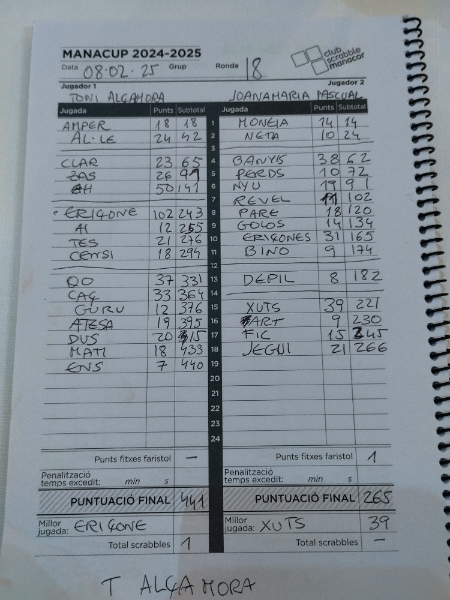 MANACUP 2024-2025
club scrabble manacor
Data 08·02·25 Grup Ronda 18
Jugador 1 Jugador 2
TONI ALÇAMORA JOANAMARIA PASCUAL
Jugada Punts Subtotal Jugada Punts Subtotal
AMPER 18 18 1 MONEIA 14 14
AL·LE 24 42 2 NETA 10 24
3
CLAR 23 65 4 BANYS 38 62
BAS 26 91 5 PERDS 10 72
EH 50 141 6 NYU 19 91
7 REVEL 11 102
ERIÇONE 102 243 8 PARE 18 120
AI 12 255 9 GOLOS 14 134
TES 21 276 10 ERIÇONES 31 165
CENSI 18 294 11 BINO 9 174
12
OO 37 331 13 DEPIL 8 182
CAÇ 33 364 14
GURU 12 376 15 XUTS 39 221
ATESA 19 395 16 ART 9 230
DUS 20 415 17 FIC 15 245
MATI 18 433 18 JEGUI 21 266
ENS 7 440 19
20
21
22
23
24
Punts fitxes faristol — Punts fitxes faristol 1
Penalització temps excedit: min s Penalització temps excedit: min s
PUNTUACIÓ FINAL 441 PUNTUACIÓ FINAL 265
Millor jugada: ERIÇONE Millor jugada: XUTS 39
Total scrabbles 1 Total scrabbles —
T ALÇAMORA